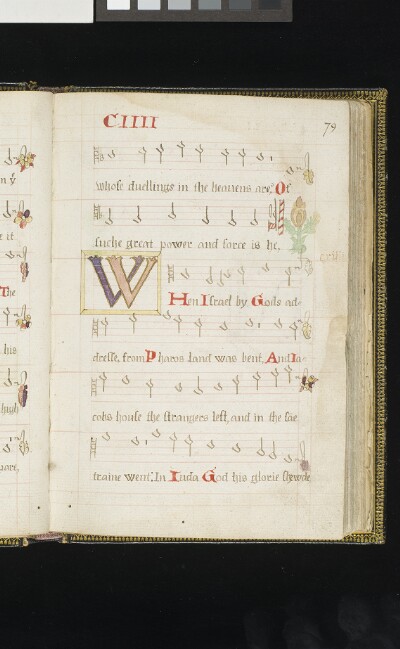 CIIII
79
whose duellings in the heavens are. Of
suche great power and force is he.
WHen Israel by Gods ad-
dresse, from Pharos land was bent, And Ia-
cobs house the strangers left, and in the sae
traine went. In Iuda God his glorie shewde
ny
e it
The
his
high